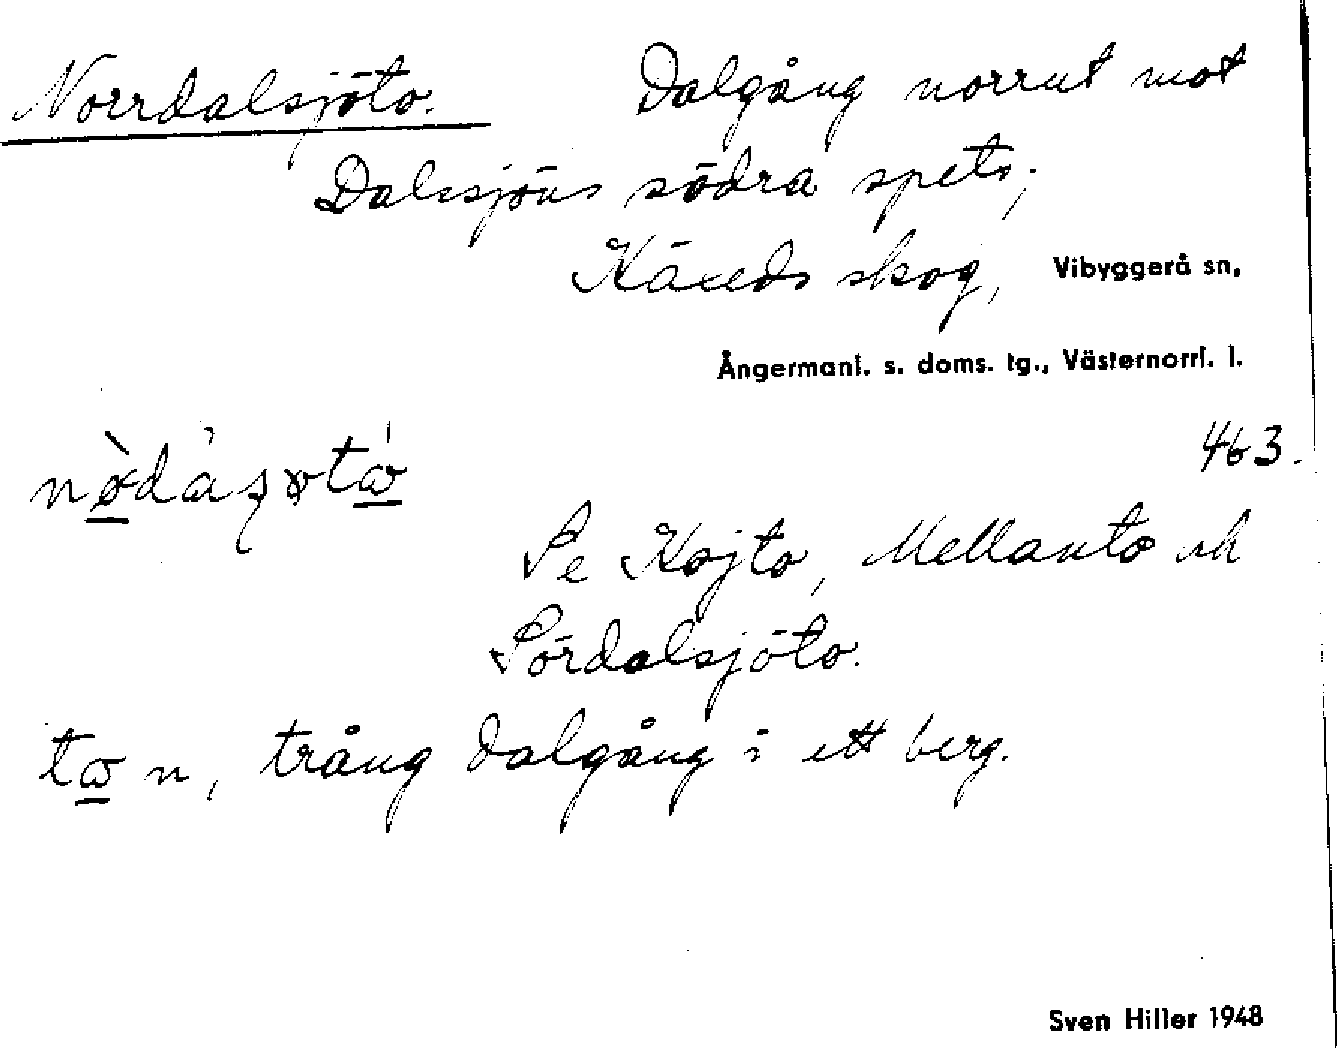 Norrdalsjöto. Dalgång norrut mot
Dalsjöns södra spets;
Käxeds skog, Vibyggerå sn,
Ångermanl. s. doms. tg., Västernorrl. l.
463.
Se Kojto, Mellanto och
Sördalsjöto.
n, trång dalgång i ett berg.
Sven Hiller 1948